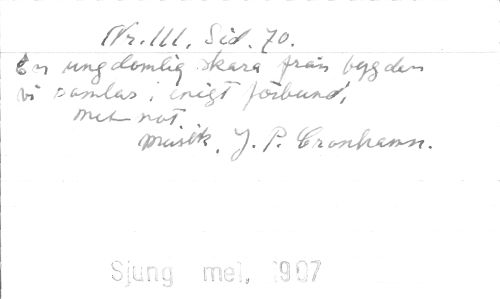 Nr. III. Sid. 70.
En ungdomlig skara från bygden
vi samlas i enigt förbund,
met not
musik, J. P. Cronhamn.
Sjung mel, 1907